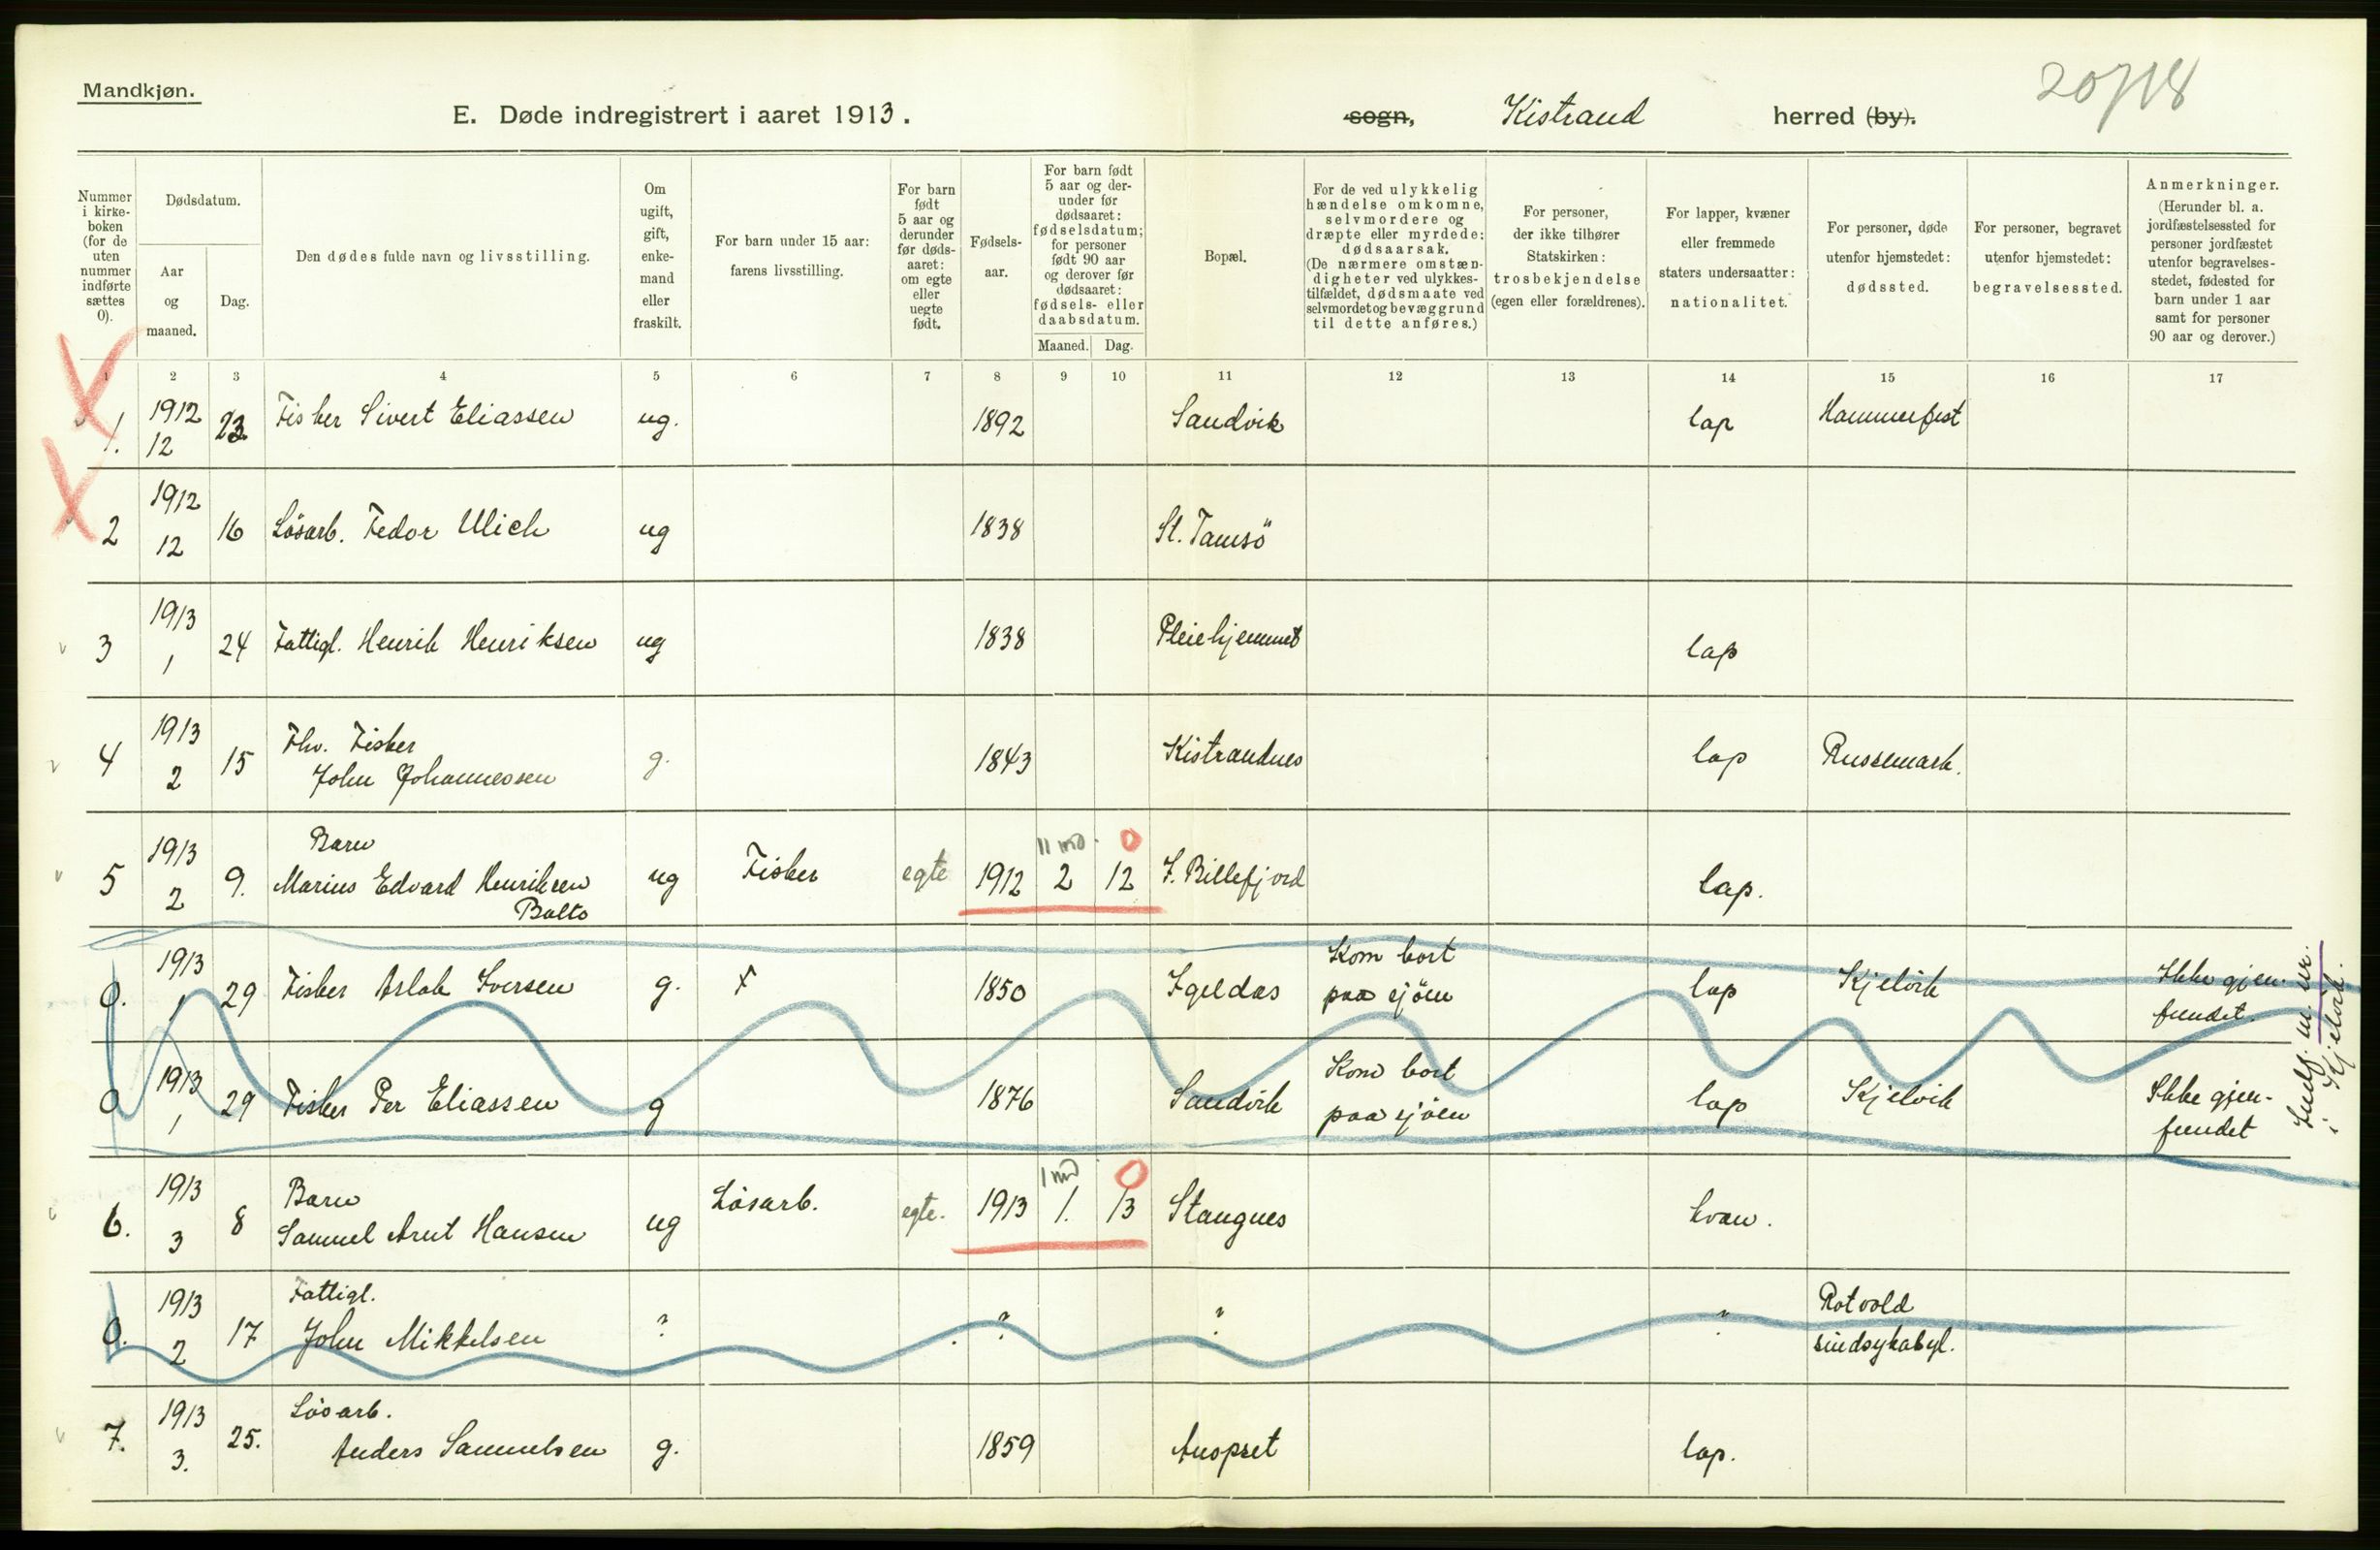 Mandkjøn.
E. Døde indregistrert i aaret 1913.
sogn, Kistrand herred (by).
20/18
Nummer i kirke-boken (for de uten nummer indførte sættes 0).
Dødsdatum.
Aar og maaned.
Dag.
Den dødes fulde navn og livsstilling.
Om ugift, gift, enke-mand eller fraskilt.
For barn under 15 aar: farens livsstilling.
For barn født 5 aar og derunder før døds-aaret: om egte eller uegte født.
Fødsels-aar.
For barn født 5 aar og der-under før dødsaaret: fødselsdatum; for personer født 90 aar og derover før dødsaaret: fødsels- eller daabsdatum.
Maaned. Dag.
Bopæl.
For de ved ulykkelig hændelse omkomne, selvmordere og dræpte eller myrdede: dødsaarsak. (De nærmere omstæn-digheter ved ulykkes-tilfældet, dødsmaate ved selvmordet og bevæggrund til dette anføres.)
For personer, der ikke tilhører Statskirken: trosbekjendelse (egen eller forældrenes).
For lapper, kvæner eller fremmede staters undersaatter: nationalitet.
For personer, døde utenfor hjemstedet: dødssted.
For personer, begravet utenfor hjemstedet: begravelsessted.
Anmerkninger. (Herunder bl. a. jordfæstelsessted for personer jordfæstet utenfor begravelses-stedet, fødested for barn under 1 aar samt for personer 90 aar og derover.)
1 2 3 4 5 6 7 8 9 10 11 12 13 14 15 16 17
1. 1912 12 23 Fisker Sivert Eliassen ug. 1892 Sandvik lap Hammerfest
2 1912 12 16 Løsarb. Fedor Ulich ug 1838 St. Tamsö
3 1913 1 24 Fattigl. Henrik Henriksen ug 1838 Pleiehjemmet lap
4 1913 2 15 Fhv. Fisker
John Johannessen g. 1843 Kistrandnes lap Russemark.
5 1913 2 9. Barn
Marius Edvard Henriksen
Balto ug Fisker egte 1912 11 md. 2 12 0 I. Billefjord lap.
0. 1913 1 29 Fisker Aslak Iversen g. 1850 Igeldas Kom bort
paa sjöen lap Kjelvik Ikke gjen-
fundet.
0 1913 1 29 Fisker Per Eliassen g 1876 Sandvik Kom bort
paa sjöen lap Kjelvik Ikke gjen-
fundet
i Kjelvik.
6. 1913 3 8 Barn
Samuel Arnt Hansen ug Løsarb. egte. 1913 1 md 1. 13 0 Stangnes kvæn.
0. 1913 2 17 Fattigl.
John Mikkelsen ? ? ? ? Rotvold
sindsykasyl.
7. 1913 3. 25. Løsarb.
Anders Samuelsen g. 1859 Auopret lap.